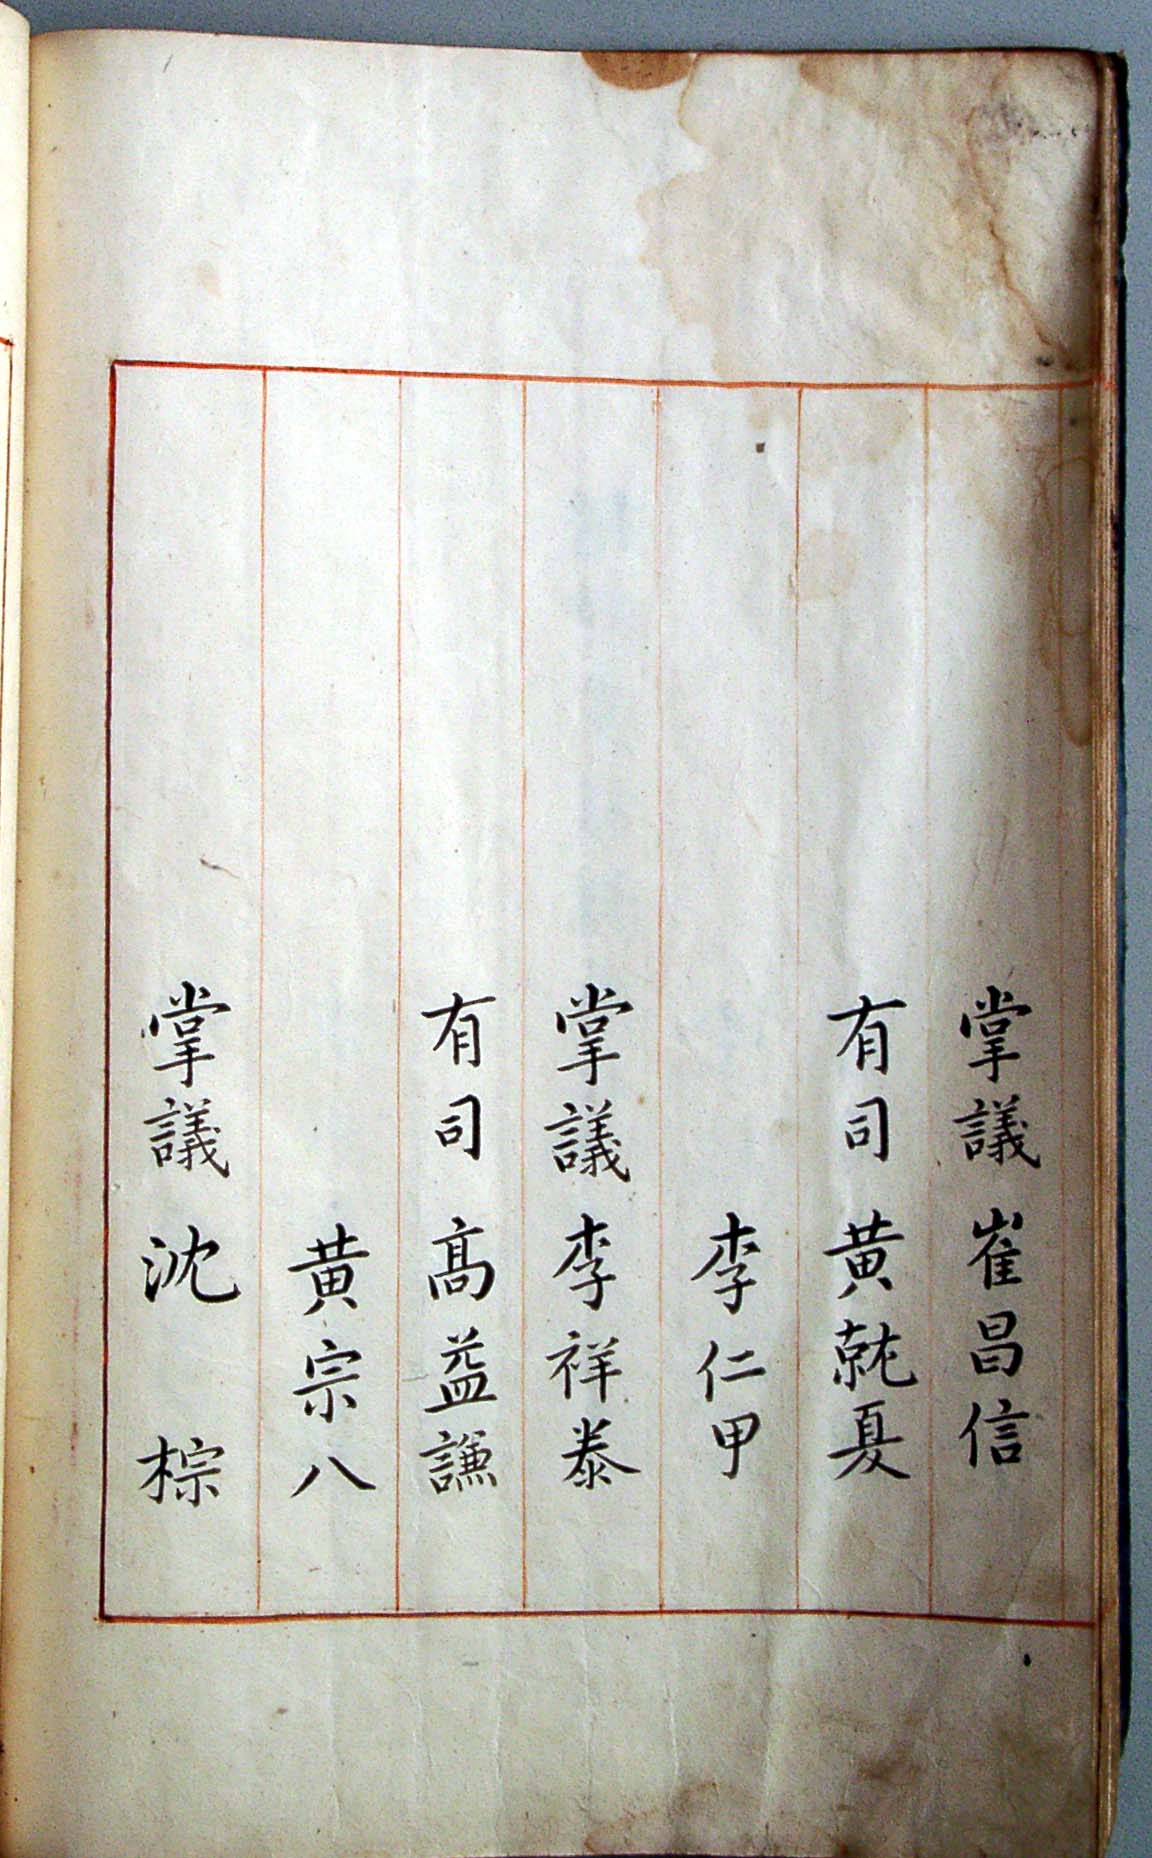 掌議 崔昌信
有司 黃就夏
李仁甲
掌議 李祥泰
有司 高益謙
黃宗八
掌議 沈棕